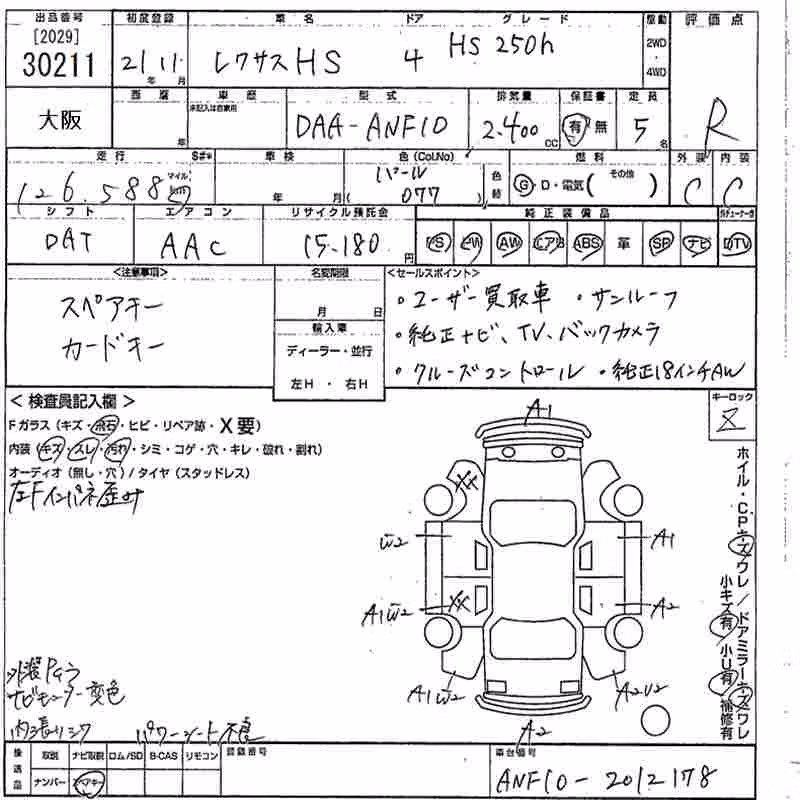 出品番号 初度登録 車名 ドア グレード 駆動 評価点
[2029]
30211 21年11月 レクサスHS 4 HS 250h 2WD・4WD R
大阪 西暦 年 車歴 未記入は自家用 型式 排気量 保証書 定員
DAA-ANF10 2.400cc 有 無 5名
走行 S#* 車検 色(Col.No) 色替 燃料 外装 内装
126.588 マイル km 年 月 パール ( 077 ) G・D・電気( その他 ) C C
シフト エアコン リサイクル預託金 純正装備品
DAT AAC 15.180円 PS PW AW エアB ABS 革 SR ナビ TV
<注意事項> 名変期限 <セールスポイント>
スペアキー 月 日 ・ユーザー買取車 ・サンルーフ
カードキー 輸入車 ・純正ナビ、TV、バックカメラ
ディーラー・並行 ・クルーズコントロール ・純正18インチAW
左H ・ 右H
<検査員記入欄> キーロック
Fガラス(キズ・飛石・ヒビ・リペア跡・X要)
内装(キズ・スレ・汚れ・シミ・コゲ・穴・キレ・破れ・割れ)
オーディオ(無し・穴)/タイヤ(スタッドレス)
左Fインパネ歪み
A1
XX
W2 A1
A1W2 XX A2
A1W2 A2U2
A2
ホイル・CPキズワレ/ドアミラーキズワレ
小キズ有 小U有 補修有
外装
ナビモニター変色
内張りシワ パワーシート不良
後送品 取説 ナビ取説 ロム/SD B-CAS リモコン 登録番号 車台番号
ナンバー スペアキー ANF10-2012178